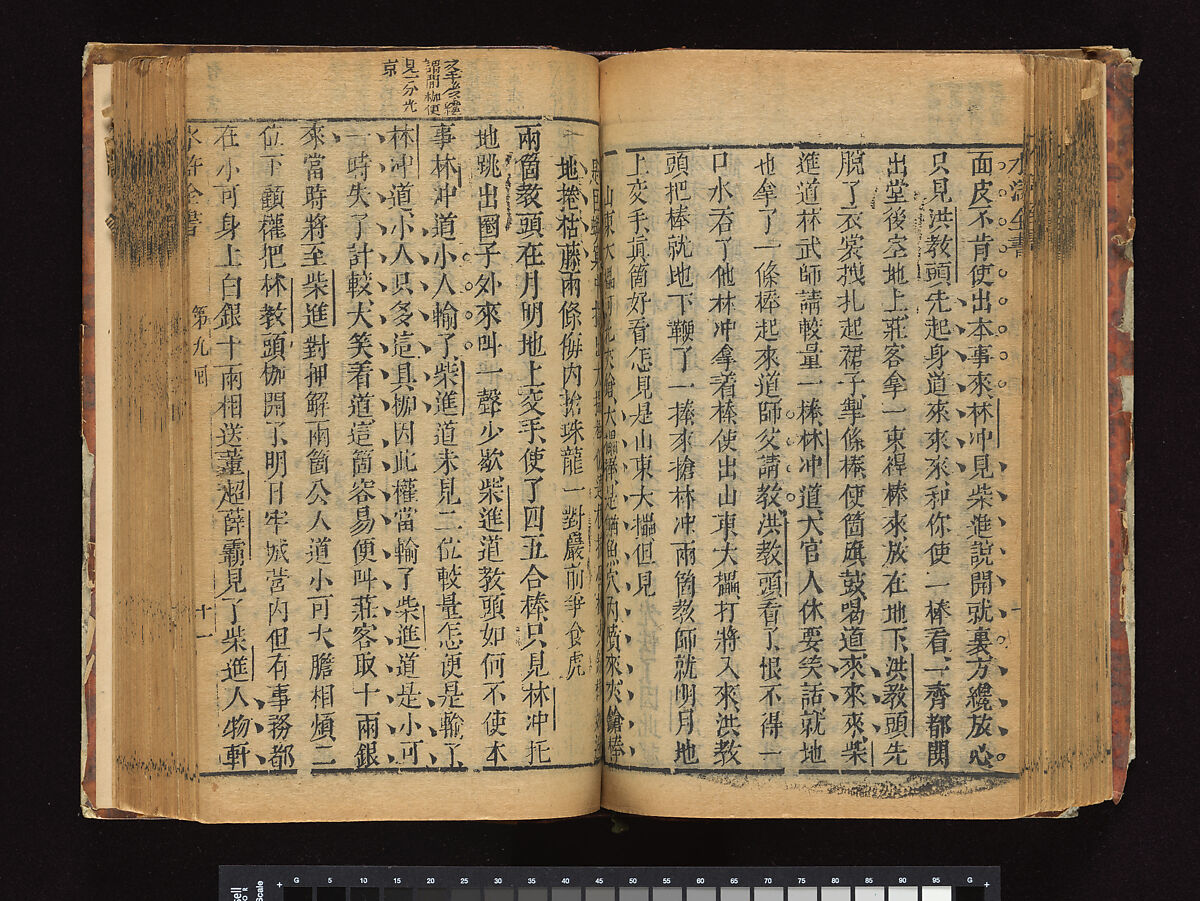 水滸全書
面皮不肯使出本事來林冲見柴進說開就裏方纔放心
只見洪教頭先起身道來來來和你使一棒看一齊都閧
出堂後空地上莊客拿一束桿棒來放在地下洪教頭先
脫了衣裳拽扎起裙子掣條棒使箇旗鼓喝道來來來柴
進道林武師請較量一棒林冲道大官人休要笑話就地
也拿了一條棒起來道師父請教洪教頭看了恨不得一
口水吞了他林冲拿着棒使出山東大擂打將入來洪教
頭把棒就地下鞭了一棒來搶林冲兩箇教師就明月地
上交手真箇好看怎見是山東大擂但見
山東大擂河北夾鎗大擂棒是鰍魚穴內噴來夾鎗棒
地捲枯藤兩條內搶珠龍一對巖前爭食虎
兩箇教頭在月明地上交手使了四五合棒只見林冲托
地跳出圈子外來叫一聲少歇柴進道教頭如何不使本
事林冲道小人輸了柴進道未見二位較量怎便是輸了
林冲道小人只多這具枷因此權當輸了柴進道是小可
一時失了計較大笑着道這箇容易便叫莊客取十兩銀
來當時將至柴進對押解兩箇公人道小可大膽相煩二
位下顧權把林教頭枷開了明日牢城營內但有事務都
在小可身上白銀十兩相送董超薛霸見了柴進人物軒
謂開枷便
見一分光
京
水滸全書 第九回 十一
0 5 10 15 20 25 30 35 40 45 50 55 60 65 70 75 80 85 90 95